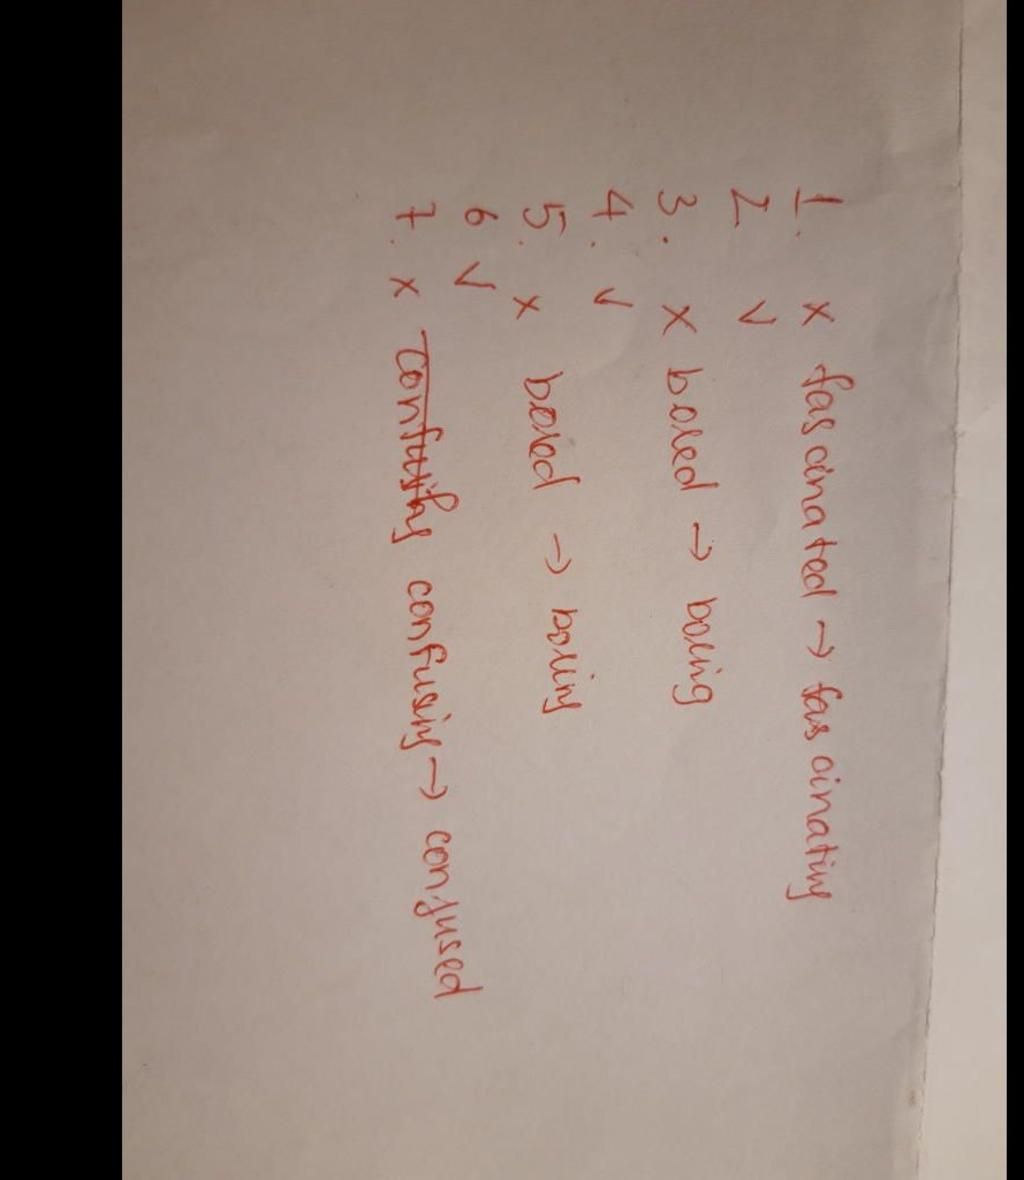 1. x fascinated → fascinating
2 ✓
3. x bored → boring
4. ✓
5. x bored → boring
6 ✓
7. x confusing confusing → confused